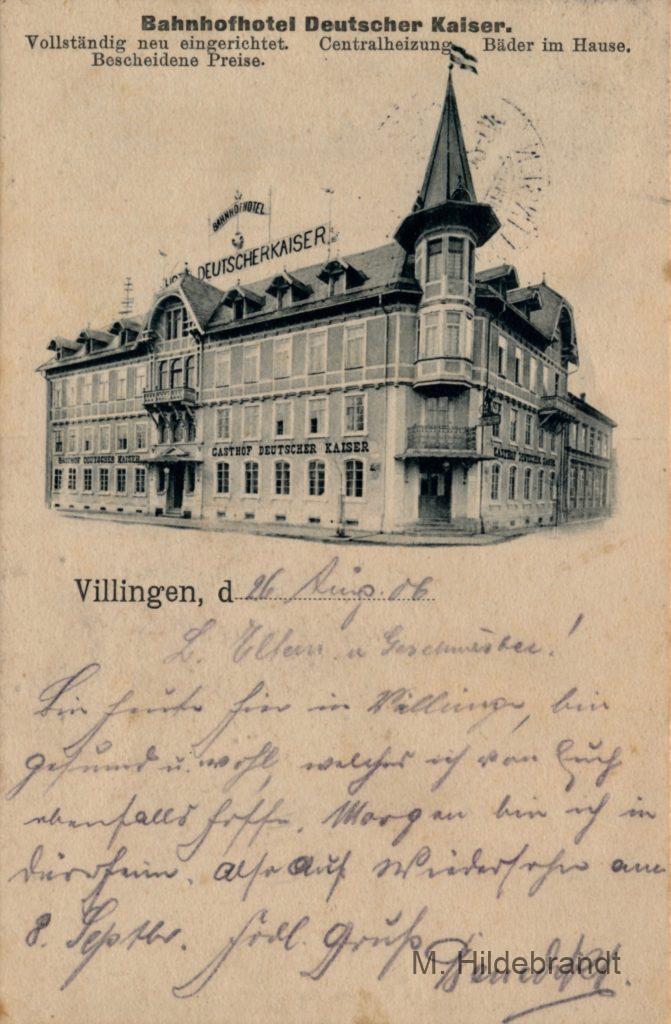 Bahnhofhotel Deutscher Kaiser.
Vollständig neu eingerichtet. Centralheizung. Bäder im Hause.
Bescheidene Preise.
BAHNHOFHOTEL
DEUTSCHERKAISER
GASTHOF DEUTSCHER KAISER
GASTHOF DEUTSCHER KAISER
GASTHOF DEUTSCHER KAISER
Villingen, d 26 Aug. 06
L. Eltern u Geschwister!
Bin heute hier in Villingen, bin
gesund u. wohl, welches ich von Euch
ebenfalls hoffe. Morgen bin ich in
Dürrheim. Also Auf Wiedersehn am
8. Septbr. Gruß
M. Hildebrandt